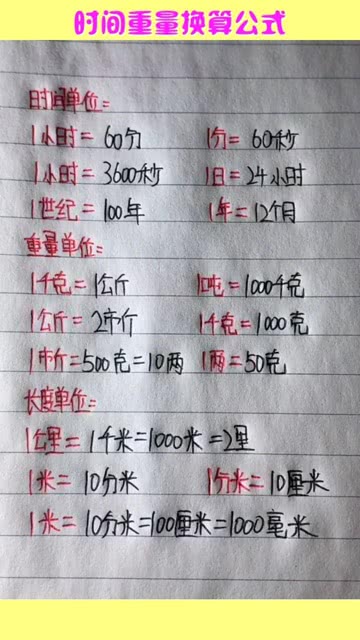 时间重量换算公式
时间单位:
1小时=60分 1分=60秒
1小时=3600秒 1日=24小时
1世纪=100年 1年=12个月
重量单位:
1千克=1公斤 1吨=1000千克
1公斤=2市斤 1千克=1000克
1市斤=500克=10两 1两=50克
长度单位:
1公里=1千米=1000米=2里
1米=10分米 1分米=10厘米
1米=10分米=100厘米=1000毫米